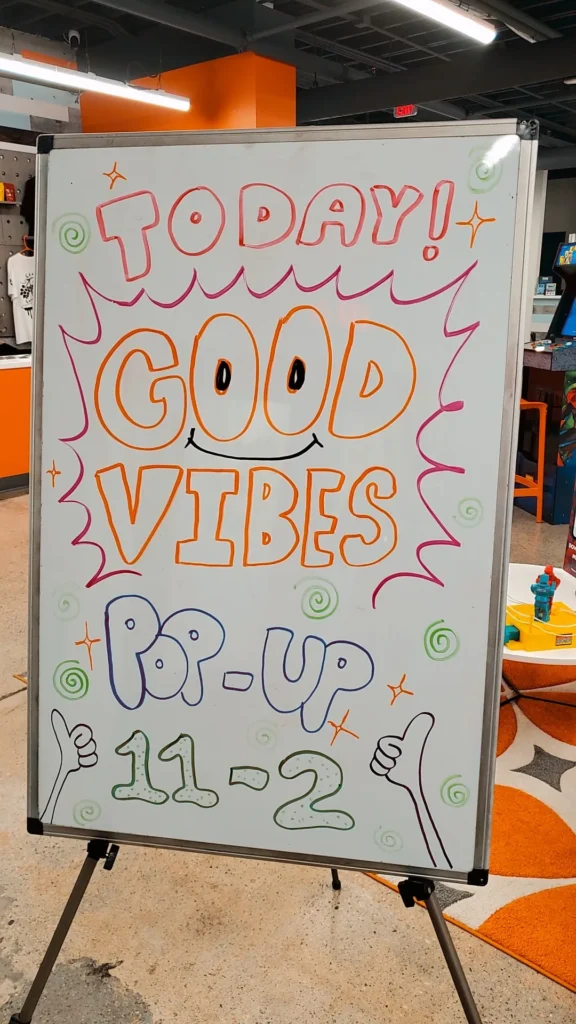 TODAY!
GOOD
VIBES
POP-UP
11-2